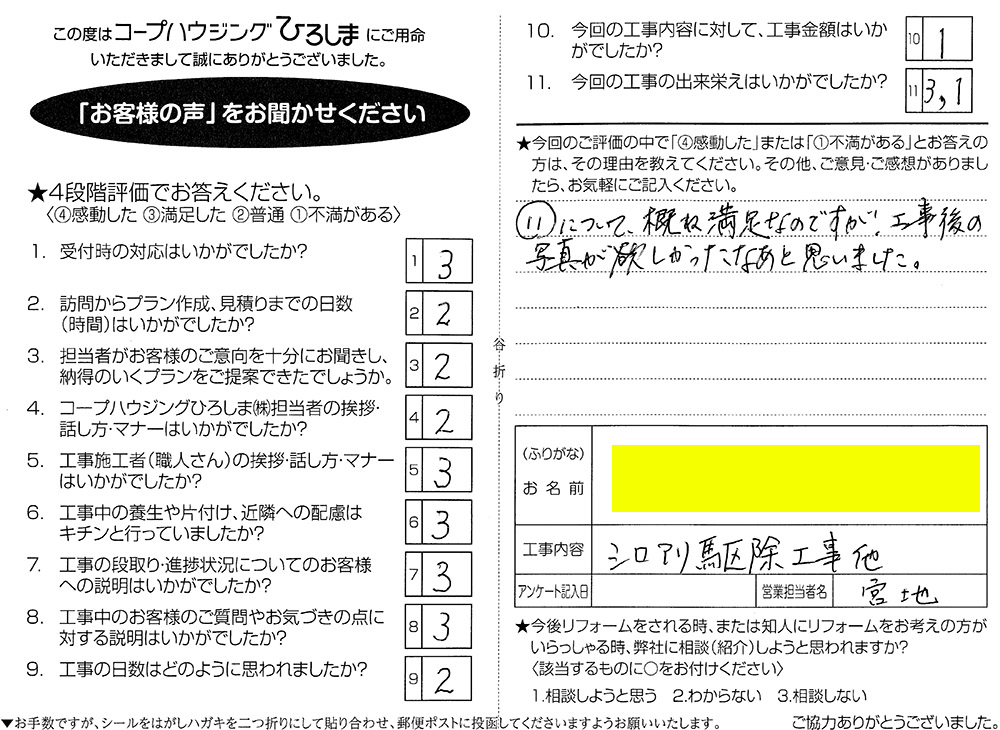 この度はコープハウジングひろしまにご用命
いただきまして誠にありがとうございました。
「お客様の声」をお聞かせください
★4段階評価でお答えください。
〈④感動した ③満足した ②普通 ①不満がある〉
1. 受付時の対応はいかがでしたか?
1 3
2. 訪問からプラン作成、見積りまでの日数
（時間）はいかがでしたか?
2 2
3. 担当者がお客様のご意向を十分にお聞きし、
納得のいくプランをご提案できたでしょうか。
3 2
4. コープハウジングひろしま㈱担当者の挨拶・
話し方・マナーはいかがでしたか?
4 2
5. 工事施工者（職人さん）の挨拶・話し方・マナー
はいかがでしたか?
5 3
6. 工事中の養生や片付け、近隣への配慮は
キチンと行っていましたか?
6 3
7. 工事の段取り・進捗状況についてのお客様
への説明はいかがでしたか?
7 3
8. 工事中のお客様のご質問やお気づきの点に
対する説明はいかがでしたか?
8 3
9. 工事の日数はどのように思われましたか?
9 2
▼お手数ですが、シールをはがしハガキを二つ折りにして貼り合わせ、郵便ポストに投函してくださいますようお願いいたします。
谷折り
10. 今回の工事内容に対して、工事金額はいか
がでしたか?
10 1
11. 今回の工事の出来栄えはいかがでしたか?
11 3,1
★今回のご評価の中で「④感動した」または「①不満がある」とお答えの
方は、その理由を教えてください。その他、ご意見・ご感想がありまし
たら、お気軽にご記入ください。
⑪について、概ね満足なのですが、工事後の
写真が欲しかったなあと思いました。
（ふりがな）
お名前
工事内容 シロアリ駆除工事他
アンケート記入日 営業担当者名 宮地
★今後リフォームをされる時、または知人にリフォームをお考えの方が
いらっしゃる時、弊社に相談（紹介）しようと思われますか?
〈該当するものに○をお付けください〉
1.相談しようと思う 2.わからない 3.相談しない
ご協力ありがとうございました。